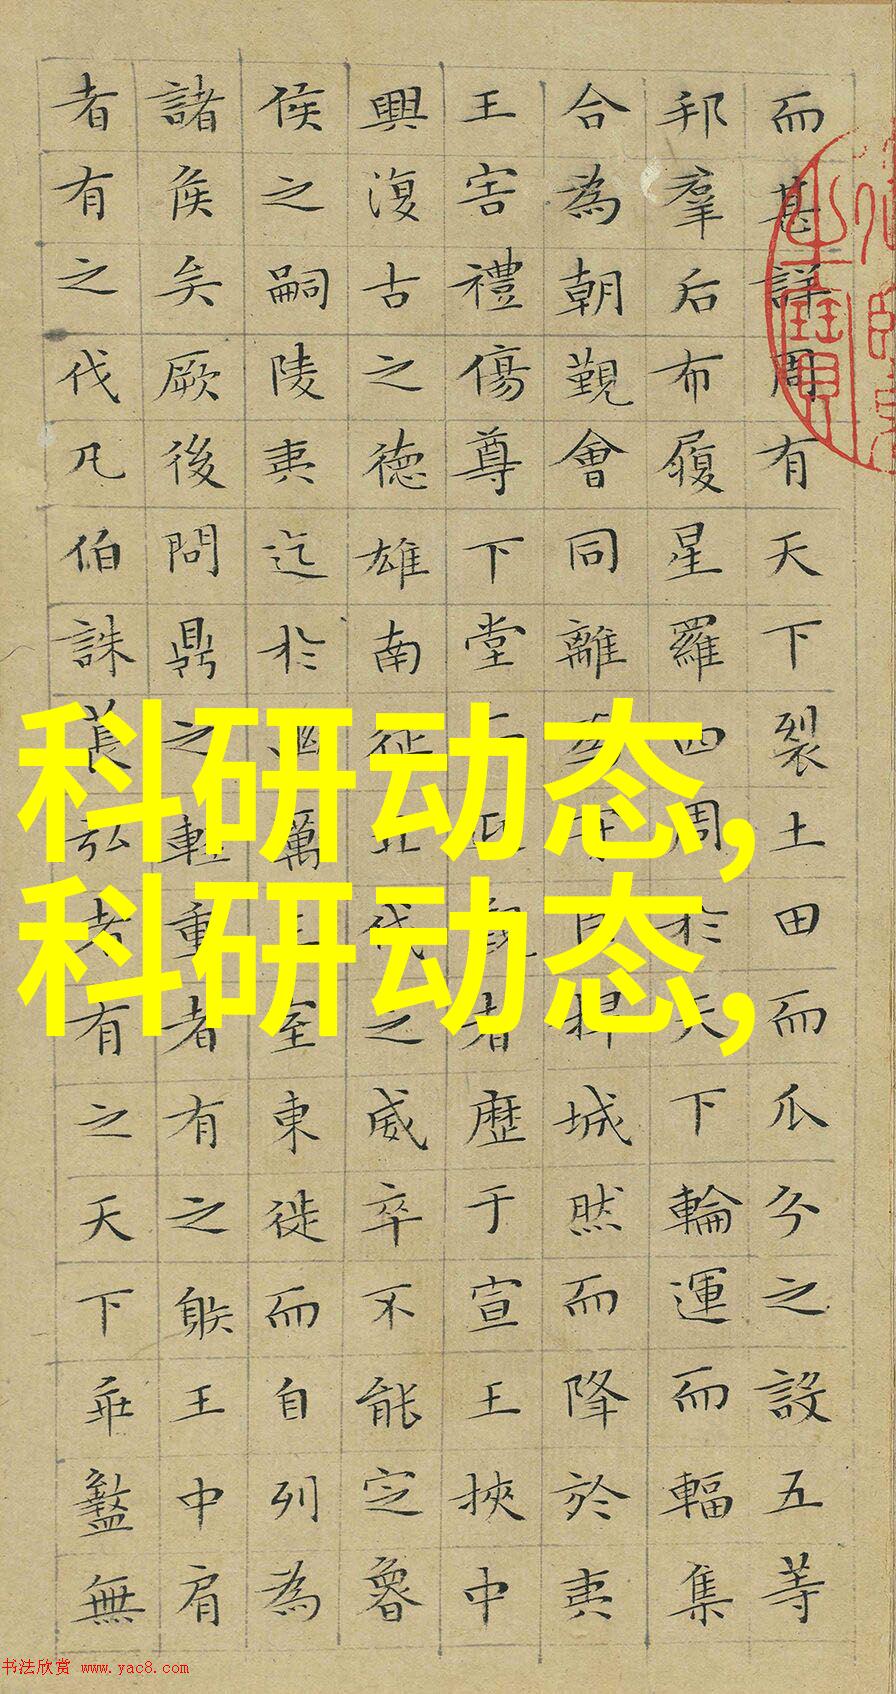 而甚詳周有天下裂土田而瓜分之設五等
邦羣后布履星羅四周於天下輪運而輻集
合為朝覲會同離為守臣捍城然而降於夷
王害禮傷尊下堂而迎覲者歷于宣王挾中
興復古之德雄南征北伐之威卒不能定魯
侯之嗣陵夷迄於幽厲王室東徙而自列為
諸侯矣厥後問鼎之輕重者有之射王中肩
者有之伐凡伯誅萇弘者有之天下乖盭無
科研动态,
科研动态,
书法欣赏 www.yac8.com